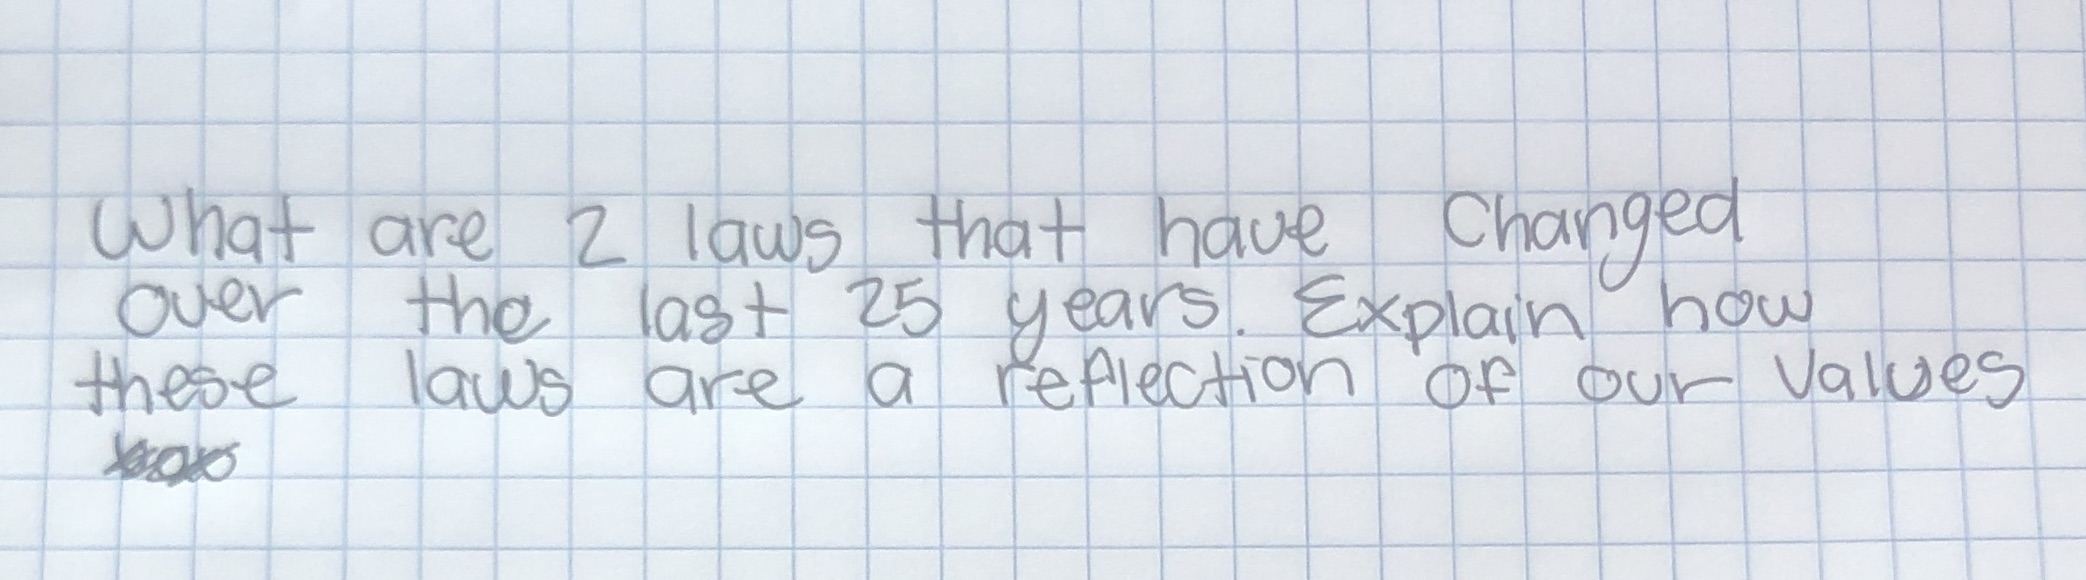 What are 2 laws that have changed
over the last 25 years. Explain how
these laws are a reflection of our values